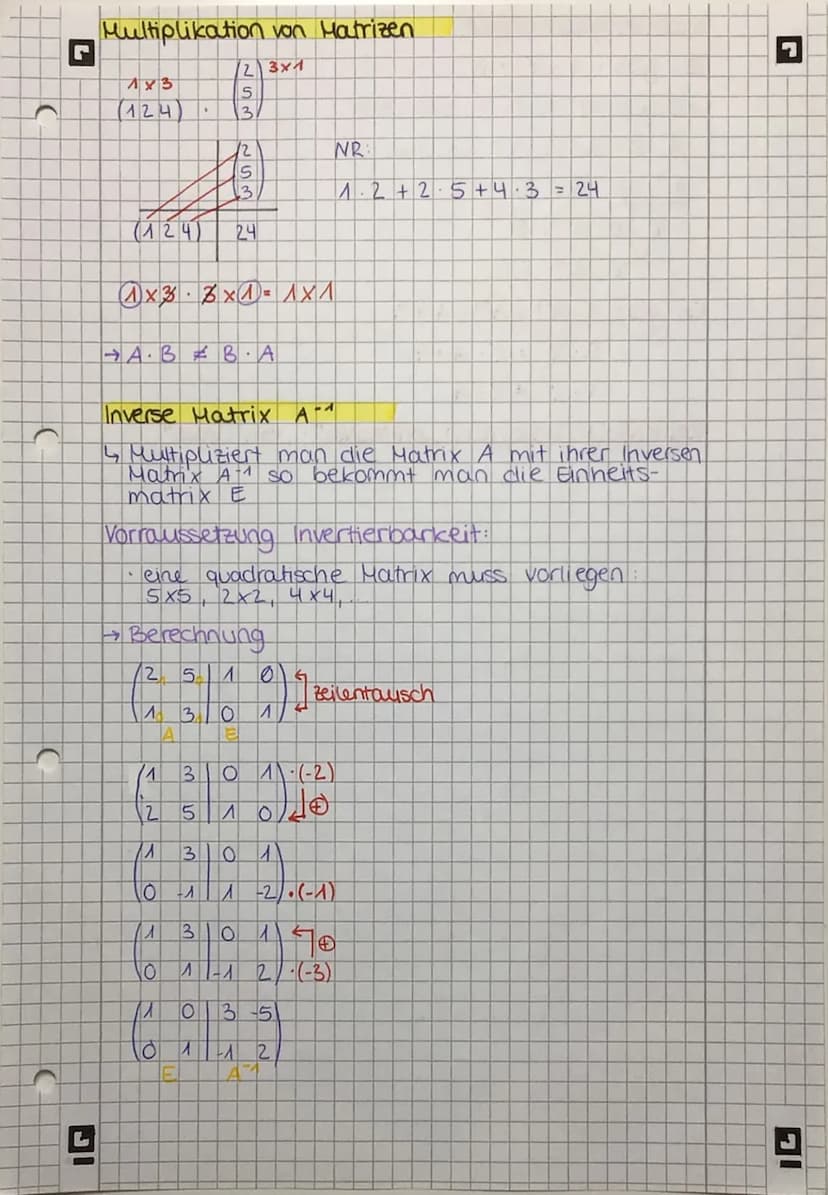 Multiplikation von Matrizen
1x3
(1 2 4) · (2 5 3) 3x1
(2 5 3)
NR:
1·2 + 2·5 + 4·3 = 24
(1 2 4) | 24
1x3 · 3x1 = 1x1
→ A·B ≠ B·A
Inverse Matrix A⁻¹
↳ Multipliziert man die Matrix A mit ihrer Inversen
Matrix A⁻¹ so bekommt man die Einheits-
matrix E
Vorraussetzung Invertierbarkeit:
· eine quadratische Matrix muss vorliegen:
5x5, 2x2, 4x4,..
→ Berechnung
2 1 5 0 | 1 0
Zeilentausch
1 0 3 1 | 0 1
A E
1 3 | 0 1 ·(-2)
2 5 | 1 0 ⊕
1 3 | 0 1
0 -1 | 1 -2 ·(-1)
1 3 | 0 1 ⊕
0 1 | -1 2 ·(-3)
1 0 | 3 -5
0 1 | -1 2
E A⁻¹